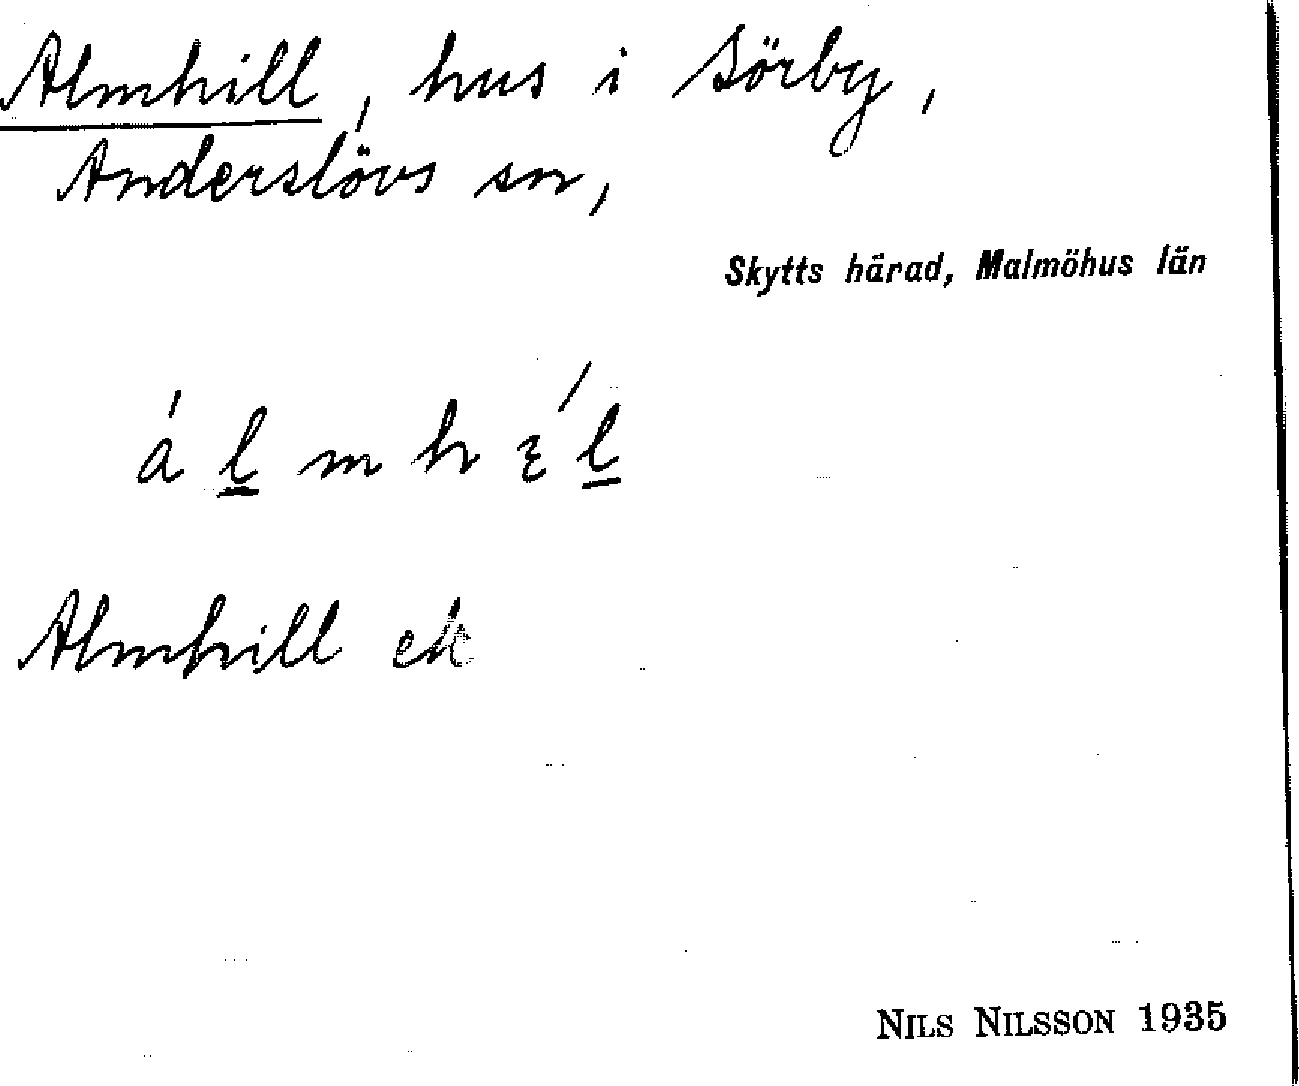 Almhill, hus i Sörby,
Anderslövs sn,
Skytts härad, Malmöhus län
á l m h ε ́ l
Almhill ek
NILS NILSSON 1935